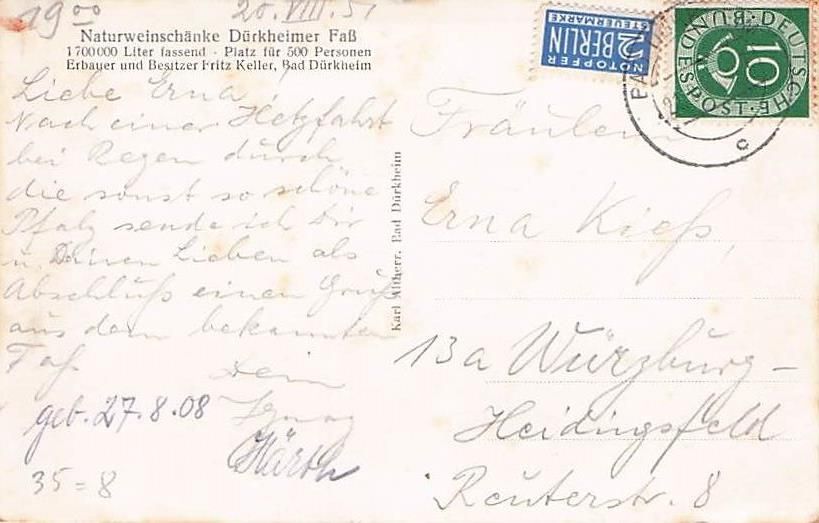 19⁰⁰ 20.VIII.51
Naturweinschänke Dürkheimer Faß
1 700 000 Liter fassend · Platz für 500 Personen
Erbauer und Besitzer Fritz Keller, Bad Dürkheim
Liebe Erna!
Nach einer Hetzfahrt
bei Regen durch
die sonst so schöne
Pfalz sende ich Dir
u. Deinen Lieben als
Abschluß einen Gruß
aus dem bekannten
Faß.
Dein
Ignaz
Härth
geb. 27.8.08
35=8
Karl Altherr, Bad Dürkheim
NOTOPFER
2 BERLIN
STEUERMARKE
DEUTSCHE
BUNDESPOST
10
c
Fräulein
Erna Kieß,
13a Würzburg-
Heidingsfeld
Reuterstr. 8